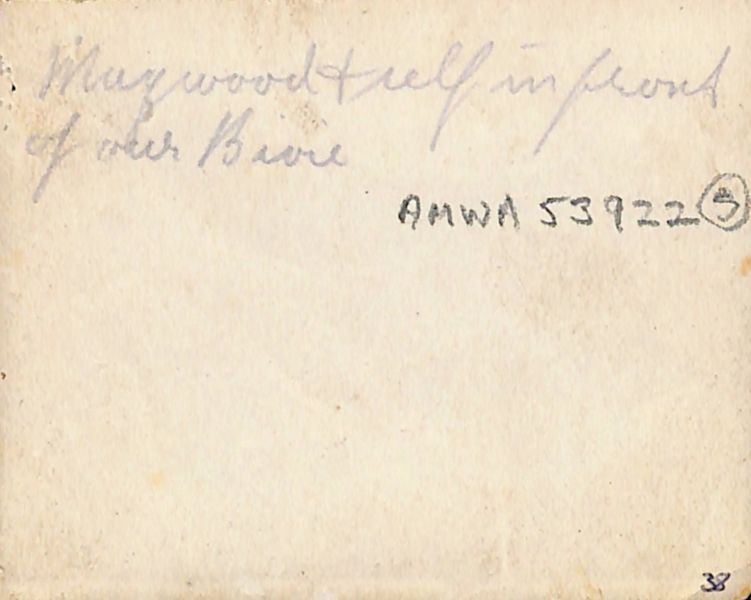 Maywood & self in front
of our Bivie
AMWA 53922 5
38